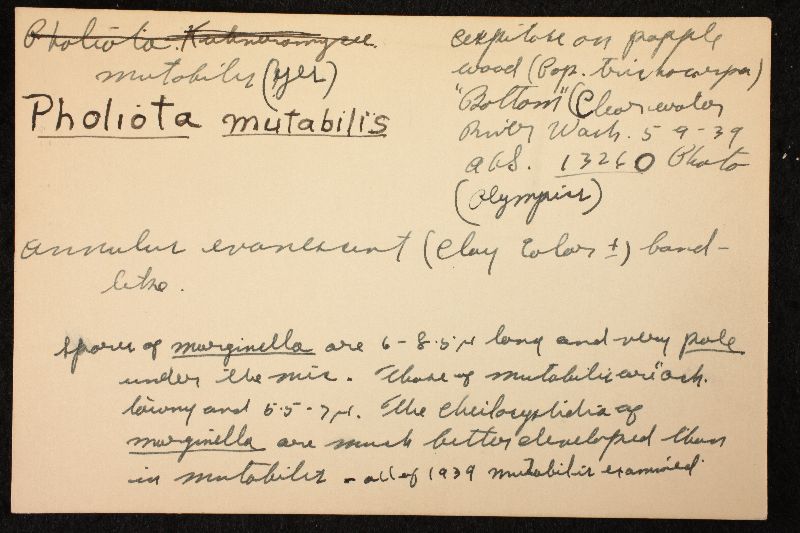 Pholiota. Kuehneromyces
mutabilis (yes)
Pholiota mutabilis
cespitose on popple
wood (Pop. trichocarpa)
"Bottom" (Clearwater
River Wash. 5-9-39
AHS. 13260 Photo
(Olympics)
annulus evanescent (clay color ±) band-
like.
Spores of marginella are 6-8.5μ long and very pale
under the mic. Those of mutabilis are och.
tawny and 5.5-7μ. The cheilocystidia of
marginella are much better developed than
in mutabilis - all of 1939 mutabilis examined